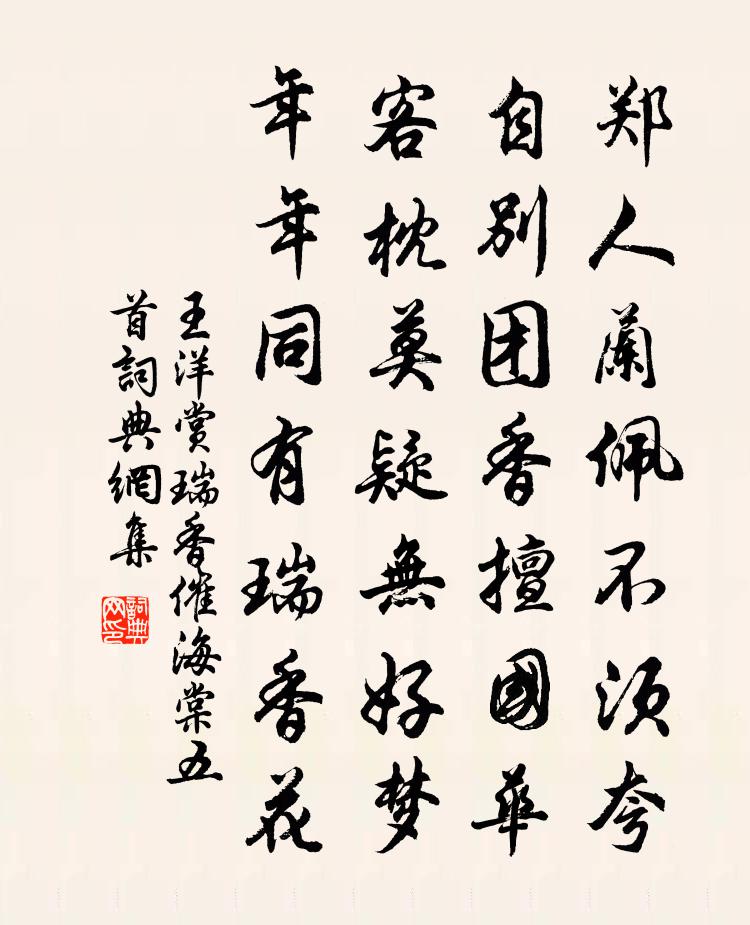 郑人蘭佩不须夸
自别团香擅國華
客枕莫疑無好梦
年年同有瑞香花
王洋赏瑞香催海棠五
首詞典網集
詞典网印